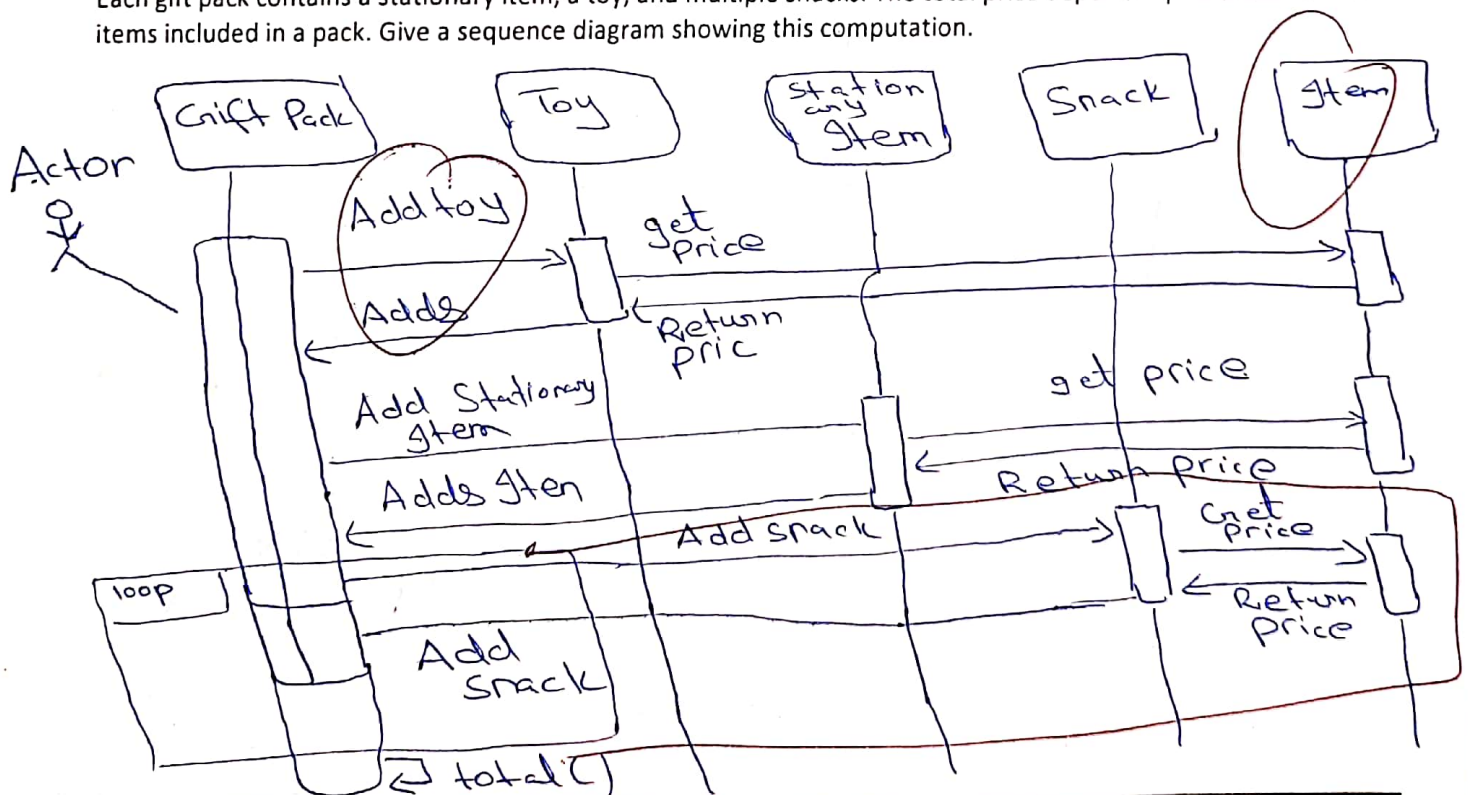 items included in a pack. Give a sequence diagram showing this computation.
Gift Pack
Toy
Station
ary
Item
Snack
Item
Actor
Add toy
get
price
Adds
Return
pric
get price
Add Stationary
Item
Return price
Adds Iten
Add snack
Get
price
loop
Return
price
Add
snack
total()